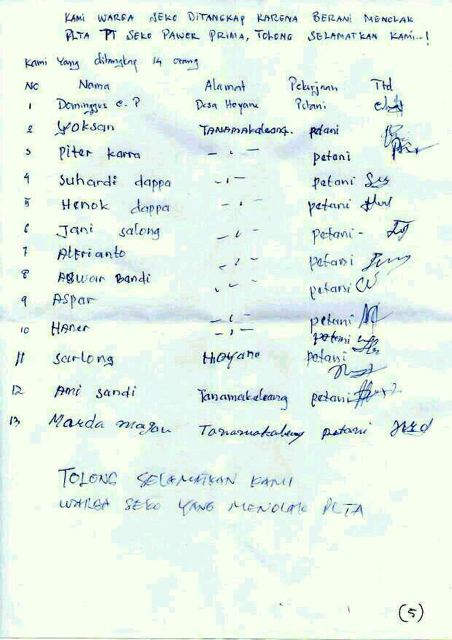 KAMI WARGA SEKO DITANGKAP KARENA BERANI MENOLAK
PLTA PT SEKO PAWER PRIMA, TOLONG SELAMATKAN KAMI--!
Kami Yang ditangkap 14 orang
NO Nama Alamat Pekerjaan Ttd
1 Domingus e. P Desa Hoyane Petani
2 Yoksan TANAMAKALEANG. petani
3 Piter karra - " - petani
4 Suhardi dappa - " - petani
5 Henok dappa - " - petani
6 Jani salong - " - petani -
7 Alfrianto - " - petani
8 Aswar Bandi - " - petani
9 Aspar - " - petani
10 Haner - " - petani
11 Sarlong Hoyane petani
12 Ami sandi Tanamakaleang petani
13 Marda petani
TOLONG SELAMATKAN KAMI
WARGA SEKO YANG MENOLAK PLTA
(5)